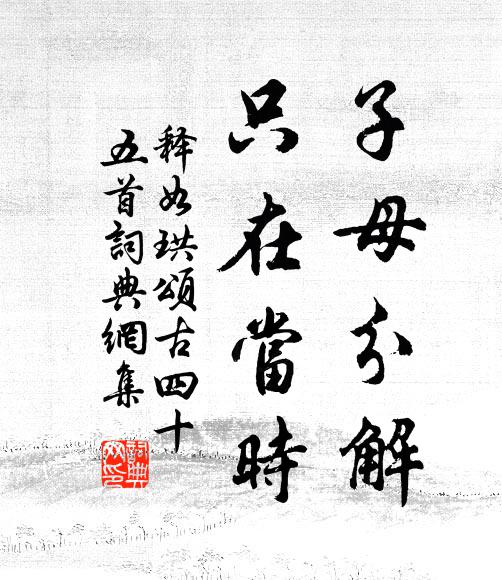 子母分解
只在當時
释如珙頌古四十
五首詞典網集